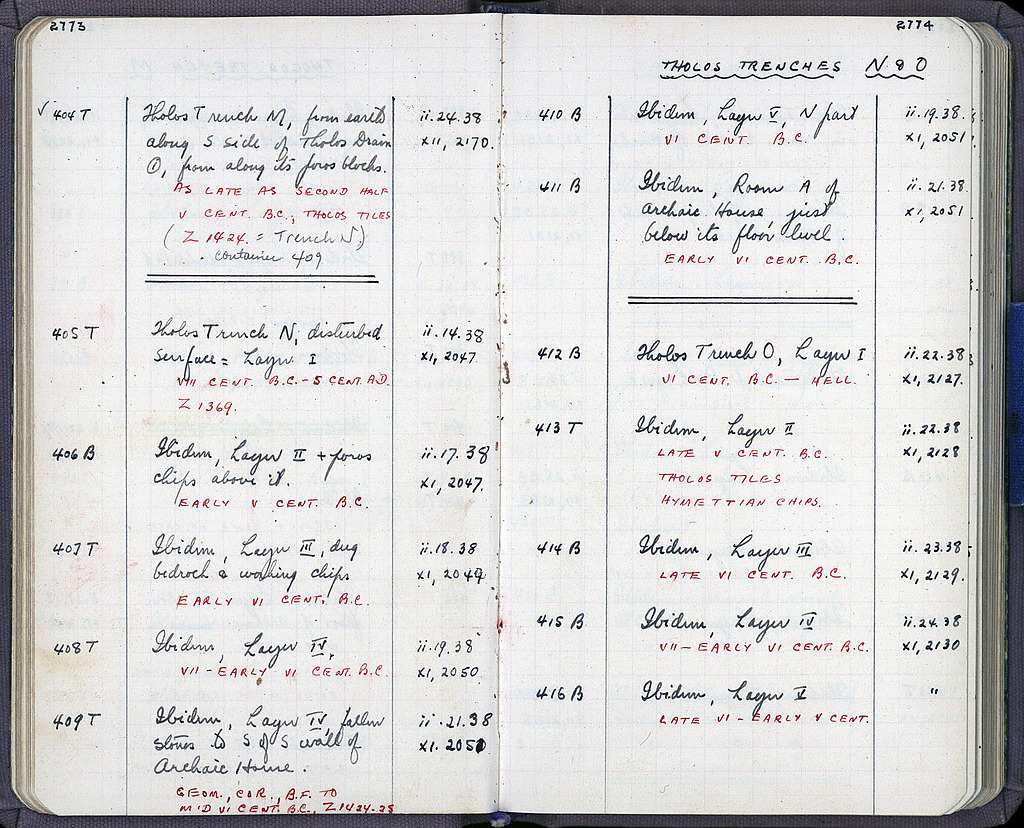 2773
✓ 404 T Tholos Trench M, from earth ii.24.38
along S side of Tholos Drain XII, 2170.
①, from along its poros blocks.
AS LATE AS SECOND HALF
V CENT. B.C., THOLOS TILES
(Z 1424. = Trench N)
container 409
405 T Tholos Trench N, disturbed ii.14.38
surface = Layer I XI, 2047.
VIII CENT. B.C. - 5 CENT. A.D.
Z 1369.
406 B Ibidem, Layer II + poros ii.17.38
chips above it. XI, 2047.
EARLY V CENT. B.C.
407 T Ibidem, Layer III, dug ii.18.38
bedrock & working chips XI, 2049
EARLY VI CENT. B.C.
408 T Ibidem, Layer IV, ii.19.38
VII - EARLY VI CENT. B.C. XI, 2050
409 T Ibidem, Layer IV, fallen ii.21.38
stones to S of S wall of XI. 2051
Archaic House.
GEOM., COR., B.F. TO
MID VI CENT. B.C., Z 1424-28
2774
THOLOS TRENCHES N & O
410 B Ibidem, Layer V, N part ii.19.38.
VI CENT. B.C. XI, 2051
411 B Ibidem, Room A of ii.21.38.
Archaic House just XI, 2051
below its floor level.
EARLY VI CENT. B.C.
412 B Tholos Trench O, Layer I ii.22.38
VI CENT. B.C. — HELL. XI, 2127.
413 T Ibidem, Layer II ii.22.38
LATE V CENT. B.C. XI, 2128
THOLOS TILES
HYMETTIAN CHIPS.
414 B Ibidem, Layer III ii.23.38
LATE VI CENT. B.C. XI, 2129.
415 B Ibidem, Layer IV ii.24.38
VII - EARLY VI CENT. B.C. XI, 2130
416 B Ibidem, Layer V "
LATE VI - EARLY V CENT.